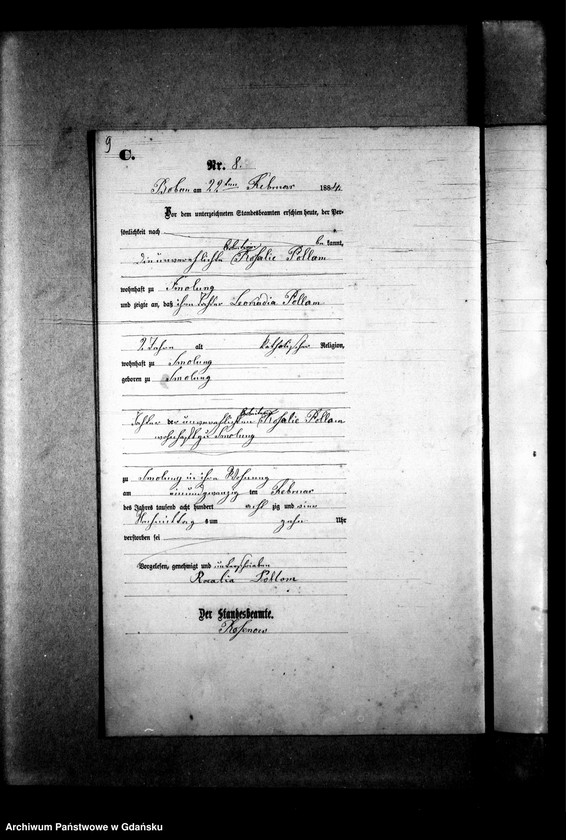 9
C.
Nr. 8.
Bobau am 22ten Februar 1884.
Vor dem unterzeichneten Standesbeamten erschien heute, der Per-
sönlichkeit nach
be kannt,
Arbeiterin
die unverehlichte Rosalie Pollam
wohnhaft zu Smolong
und zeigte an, daß ihre Tochter Leocadia Pollam
2 Jahre alt katholischer Religion,
wohnhaft zu Smolong
geboren zu Smolong
Tochter der unverehlichten Rosalie Pollam
wohnhaft zu Smolong
zu Smolong in ihrer Wohnung
am einundzwanzig ten Februar
des Jahres tausend acht hundert acht zig und vier
Nachmittag s um zehn Uhr
verstorben sei
Vorgelesen, genehmigt und unterschrieben
Rosalia Pollom
Der Standesbeamte.
Rosenow
Archiwum Państwowe w Gdańsku